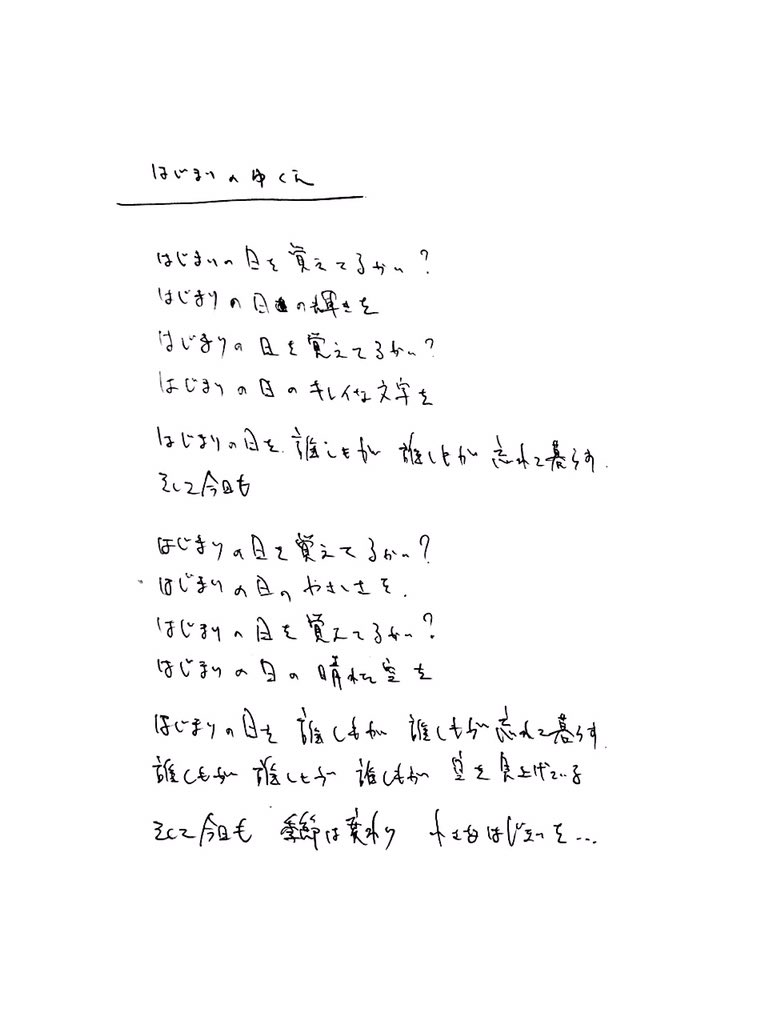 はじまりのゆくえ
はじまりの日を覚えてるかい?
はじまりの日の輝きを
はじまりの日を覚えてるかい?
はじまりの日のキレイな文字を
はじまりの日を 誰しもが 誰しもが 忘れて暮らす
そして今日も
はじまりの日を覚えてるかい?
はじまりの日のやさしさを
はじまりの日を覚えてるかい?
はじまりの日の晴れた空を
はじまりの日を 誰しもが 誰しもが忘れて暮らす
誰しもが 誰しもが 誰しもが 空を見上げている
そして今日も 季節は変わり はじまりを...